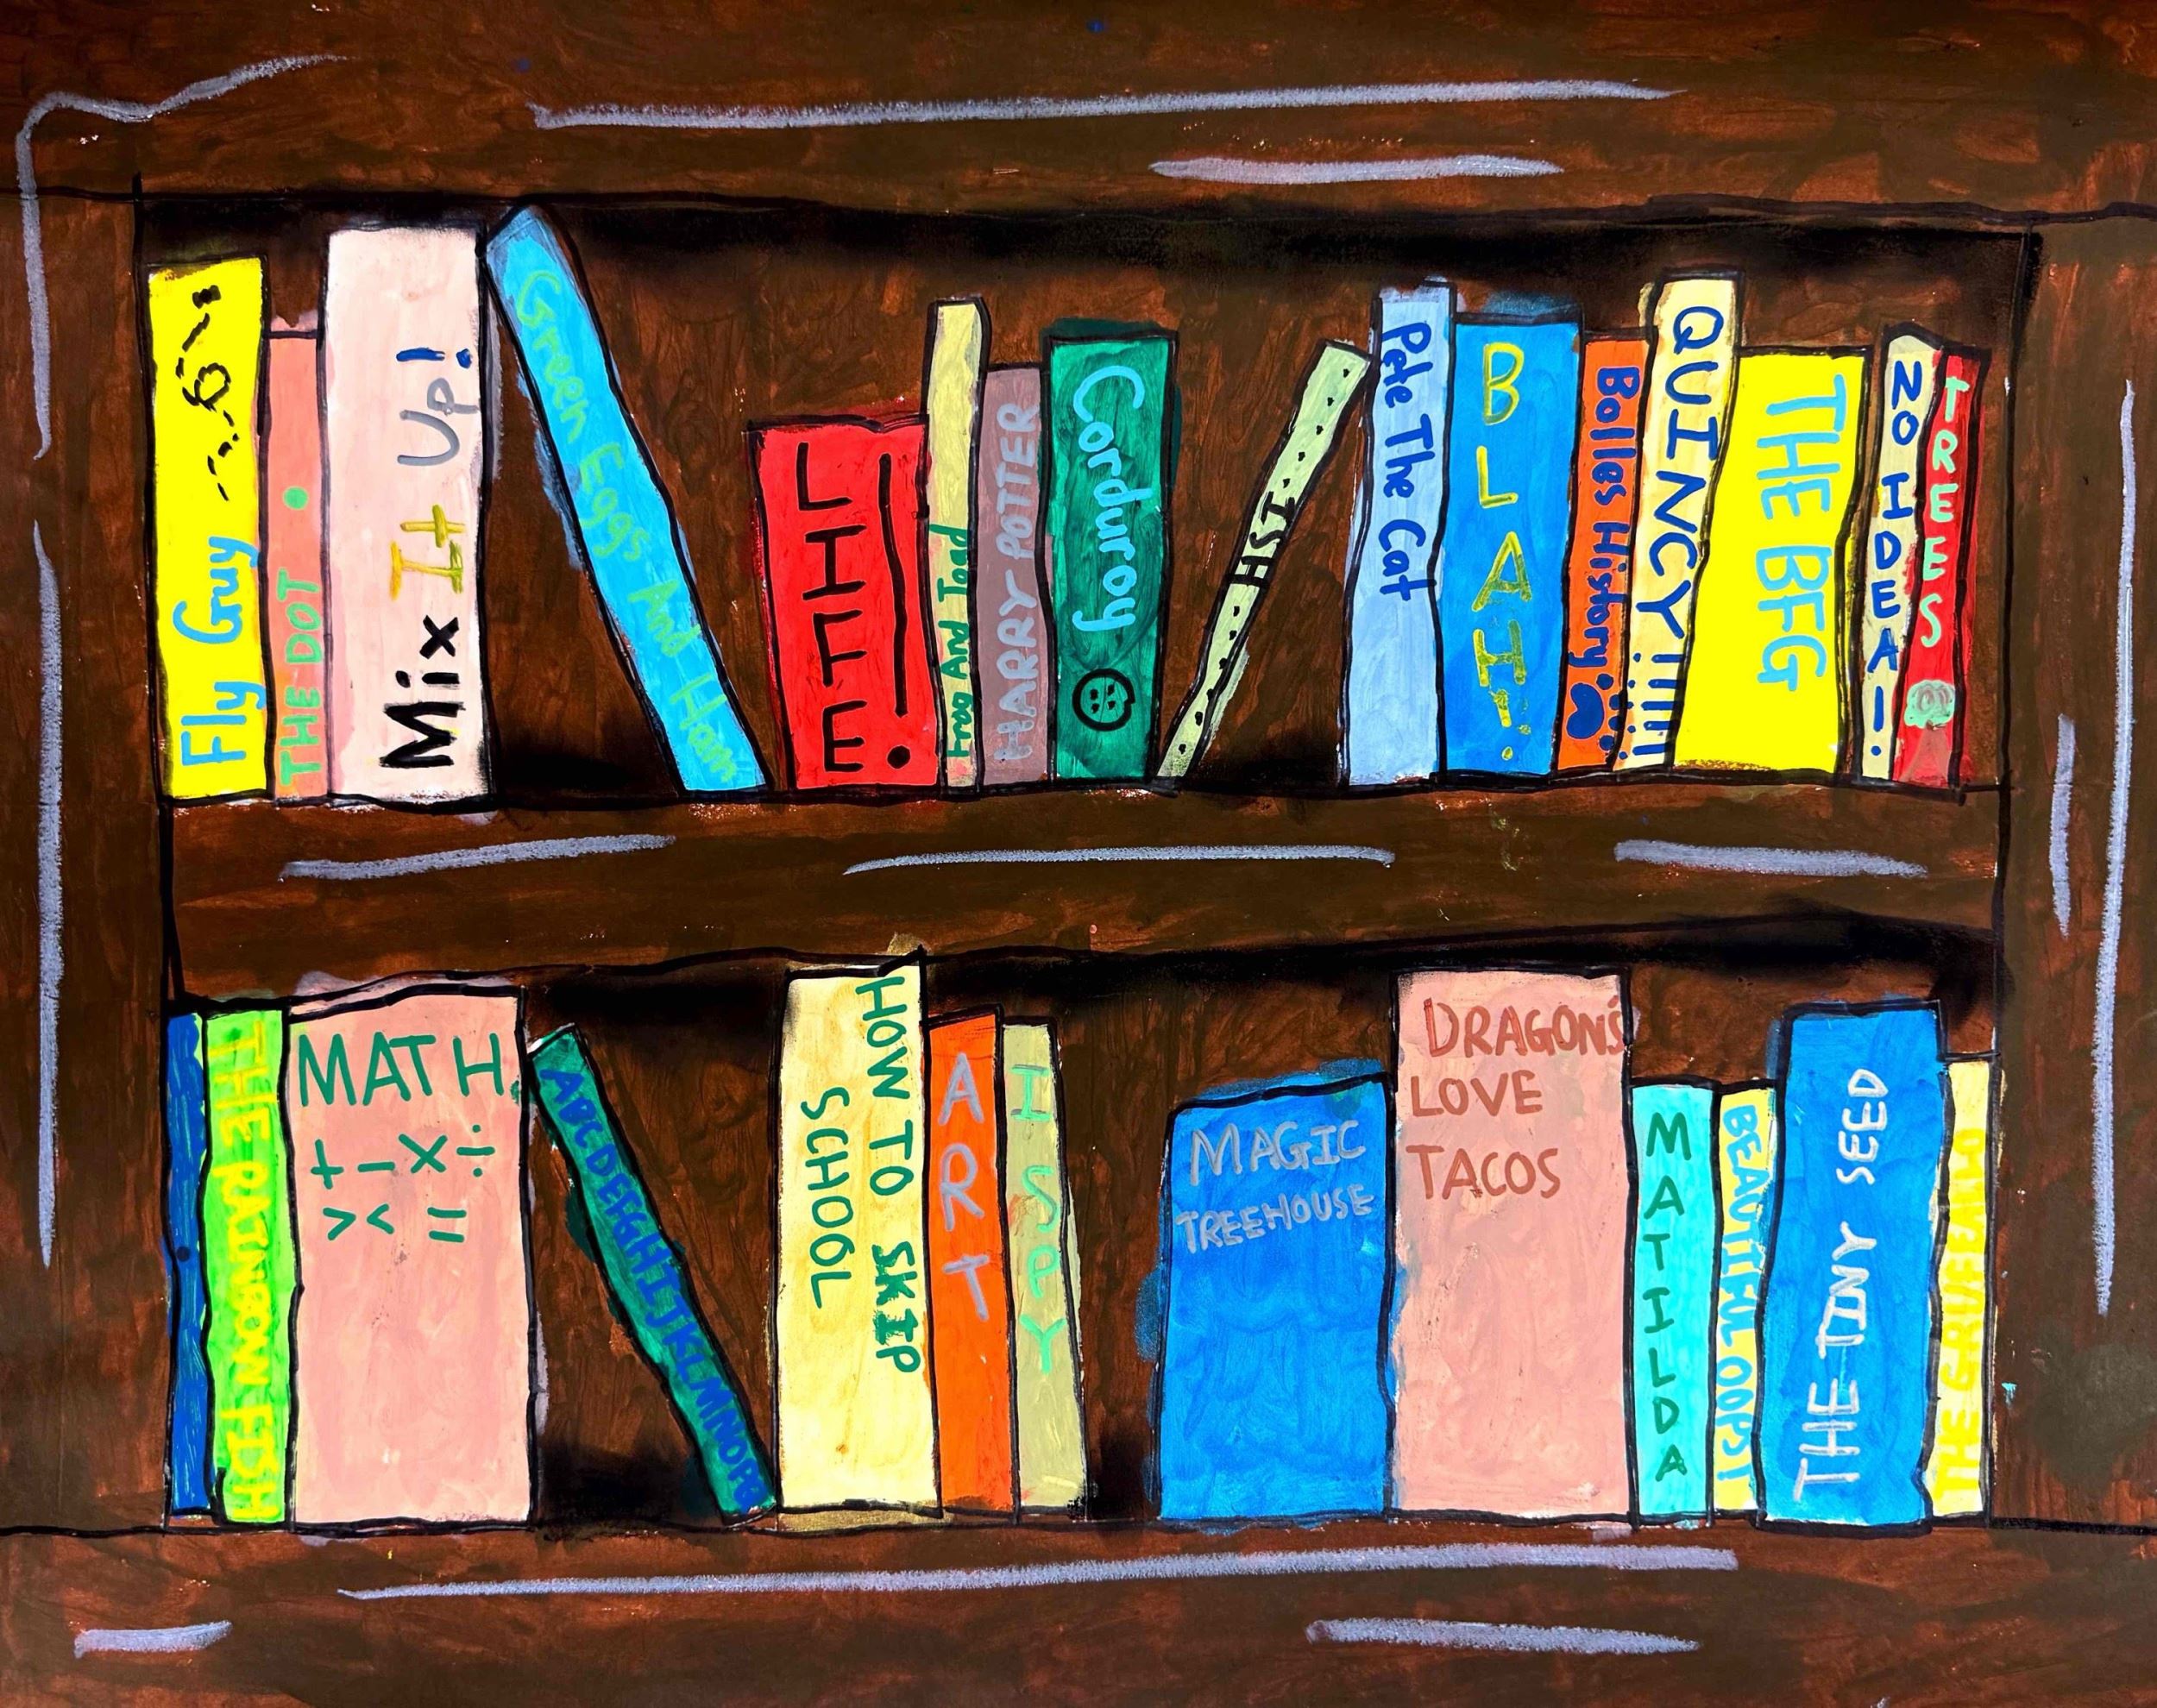 Fly Guy
THE DOT
Mix It Up!
Green Eggs And Ham
LIFE!
Frog And Toad
HARRY POTTER
Corduroy
ISH
Pete The Cat
BLAH!
Bolles History
QUINCY!!!!!
THE BFG
NO IDEA!
TREES
THE RAINBOW FISH
MATH
+ - × ÷
> < =
ABCDEFGHIJKLMNOPQ
HOW TO SKIP
SCHOOL
ART
I SPY
MAGIC
TREEHOUSE
DRAGONS
LOVE
TACOS
MATILDA
BEAUTIFUL OOPS!
THE TINY SEED
THE GRUFFALO